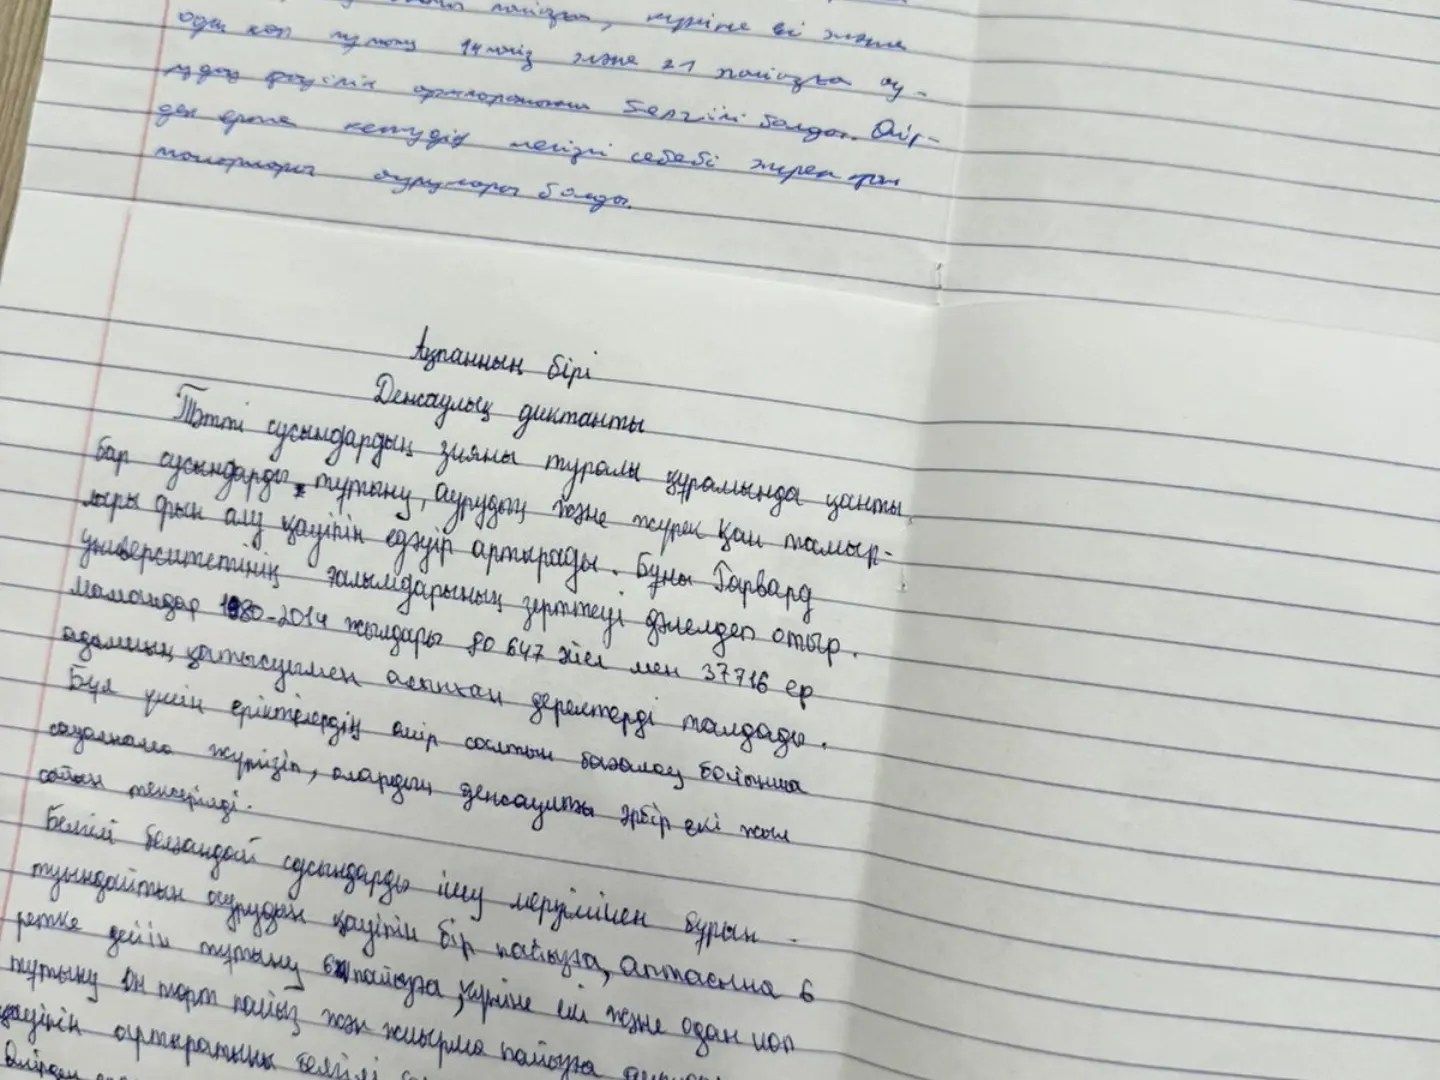 пайызға, күніне екі және
одан көп тұтыну 14 пайыз және 21 пайызға ау-
рудың қаупін арттыратыны белгілі болды. Өмір-
ден ерте кетудің негізгі себебі жүрек қан
тамырлары аурулары болды.
Ақпанның бірі
Денсаулық диктанты
Тәтті сусындардың зияны туралы құрамында қанты
бар сусындарды тұтыну, аурудың және жүрек қан тамыр-
лары дрын алу қауіпін едәуір артырады. Бұны Гарвард
университетінің ғалымдарының зерттеуі дәлелдеп отыр.
Мамандар 1980-2014 жылдары 80 647 әйел мен 37716 ер
адамның қатысуымен алынған деректерді талдады.
Бұл үшін еріктілердің өмір салтын бағалау бойынша
сауалнама жүргізіп, олардың денсаулығы әрбір екі жыл
сайын тексерілді.
Белгілі болғандай сусындарды ішу мерзімінен бұрын
туындайтын аурудың қауіпін бір пайызға, аптасына 6
ретке дейін тұтыну 6 пайызға, күніне екі және одан көп
тұтыну он төрт пайыз және жиырма пайызға
қауіпін арттыратыны белгілі
Өмірден